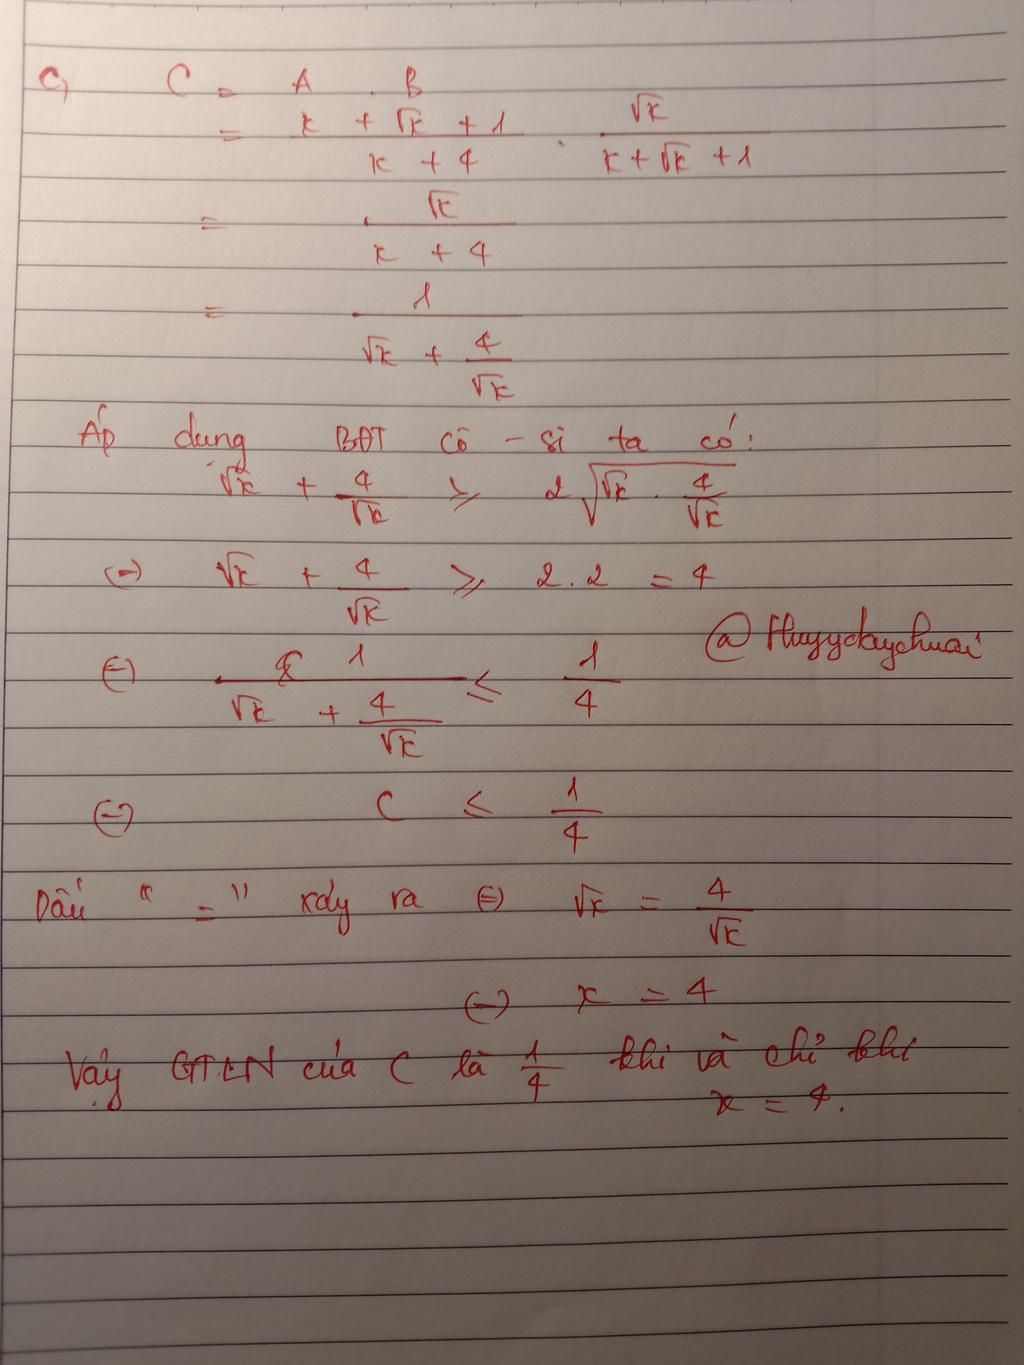 c, C = A . B
= x + √x + 1 / x + 4 . √x / x + √x + 1
= √x / x + 4
= 1 / √x + 4/√x
Áp dụng BĐT cô - si ta có:
√x + 4/√x ⩾ 2√(√x . 4/√x)
⇔ √x + 4/√x ⩾ 2.2 = 4
⇔ 1 / √x + 4/√x ≤ 1/4
@Huyydaychuai
⇔ C ≤ 1/4
Dấu " = " xảy ra ⇔ √x = 4/√x
⇔ x = 4
Vậy GTLN của C là 1/4 khi và chỉ khi
x = 4.